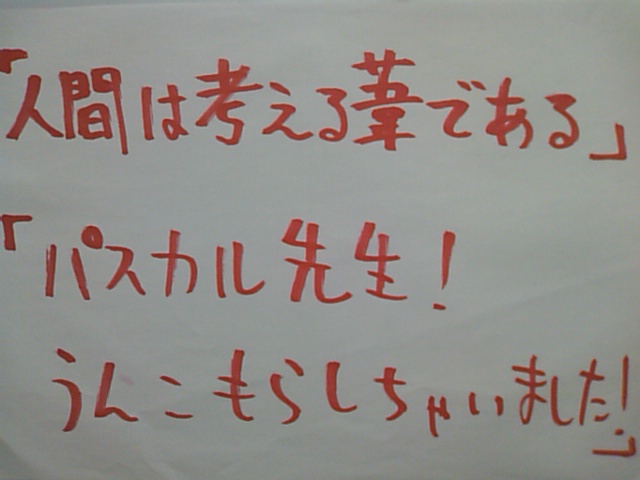 「人間は考える葦である」
「パスカル先生！
うんこもらしちゃいました！」